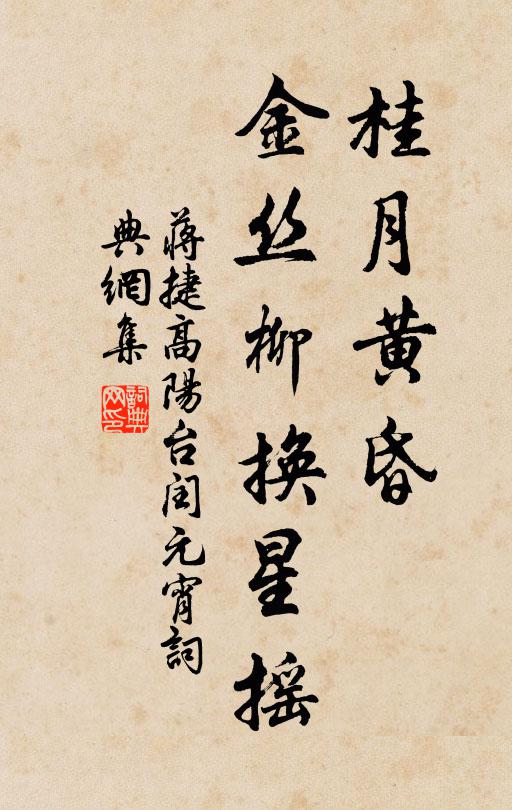 桂月黄昏
金丝柳换星摇
蒋捷高陽台闰元宵詞
典網集
詞典网印